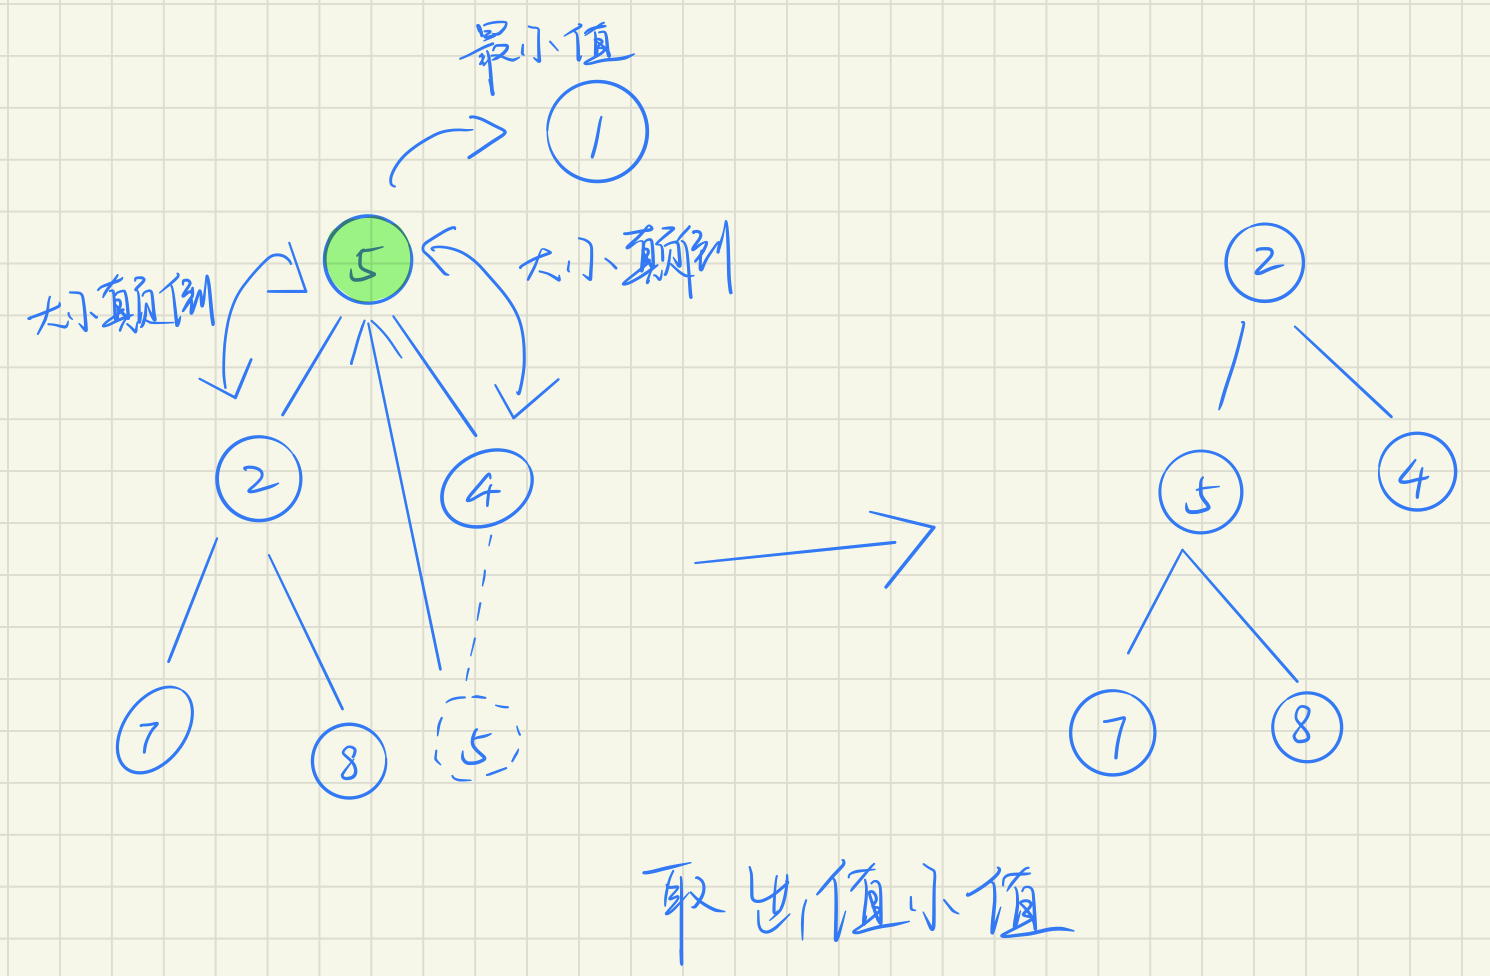 最小值
1
5
大小颠倒
大小颠倒
2
4
7
8
5
2
5
4
7
8
取出值小值